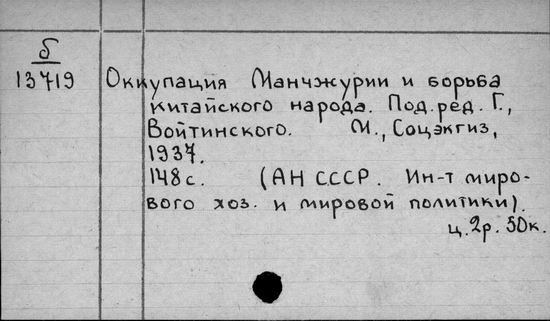 б
13719
Оккупация Манчжурии и борьба
китайского народа. Под. ред. Г.,
Войтинского. М., Соцэкгиз,
1937.
148 с. (АН СССР. Ин-т миро-
вого хоз. и мировой политики).
ц. 2р. 50к.